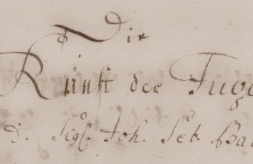 Die
Kunst der Fuge
d. Sig. Joh. Seb. Bach